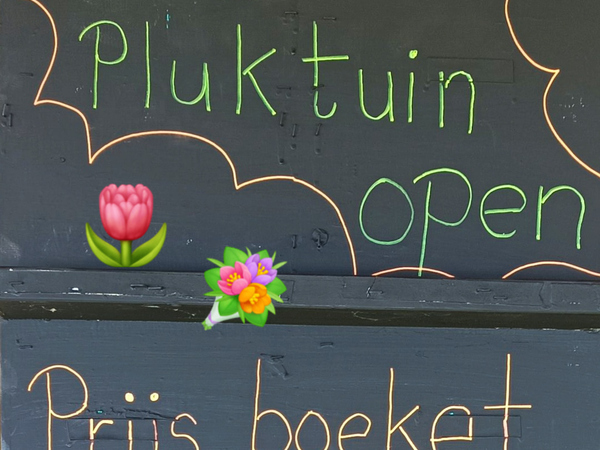 Pluktuin
open
Prijs boeket